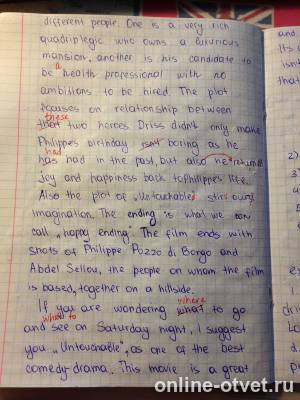 different people. One is a very rich
quadriplegic who owns a luxurious
mansion, another is his candidate to
a
be health professional with no
ambitions to be hired. The plot
focuses on relationship between
these
that two heroes. Driss didn't only make
Philippe's birthday isn't boring as he
had
has had in the past, but also he returned
joy and happiness back to Philippe's life.
Also the plot of „Untouchable" stirs our
imagination. The ending is what we can
call „happy ending". The film ends with
shots of Philippe Pozzo di Borgo and
Abdel Sellou, the people on whom the film
is based, together on a hillside.
If you are wondering what to go
where
what to
and see on Saturday night, I suggest
you „Untouchable", as one of the best
comedy-drama. This movie is a great
and
It's
isn't
that
2)
online-otvet.ru